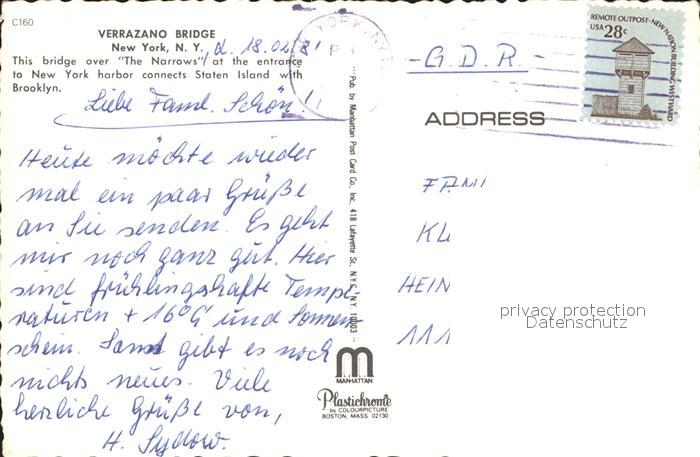 C160
VERRAZANO BRIDGE
New York, N. Y.
This bridge over "The Narrows" at the entrance
to New York harbor connects Staten Island with
Brooklyn.
d. 18.02.81
Liebe Faml. Schön!
Heute möchte wieder
mal ein paar Grüße
an Sie senden. Es geht
mir noch ganz gut. Hier
sind frühlingshafte Tempe-
raturen + 16°C und Sonnen-
schein. Sonst gibt es noch
nichts neues. Viele
herzliche Grüße von,
H. Sydow.
Pub. by Manhattan Post Card Co., Inc., 418 Lafayette St., N.Y.C., N.Y. 10003
MANHATTAN
Plastichrome
by COLOURPICTURE
BOSTON, MASS 02130
REMOTE OUTPOST·NEW NATION BUILDING WESTWARD
USA 28c
-G.D.R.-
ADDRESS
FAMI
KL
HEIN
111
privacy protection
Datenschutz